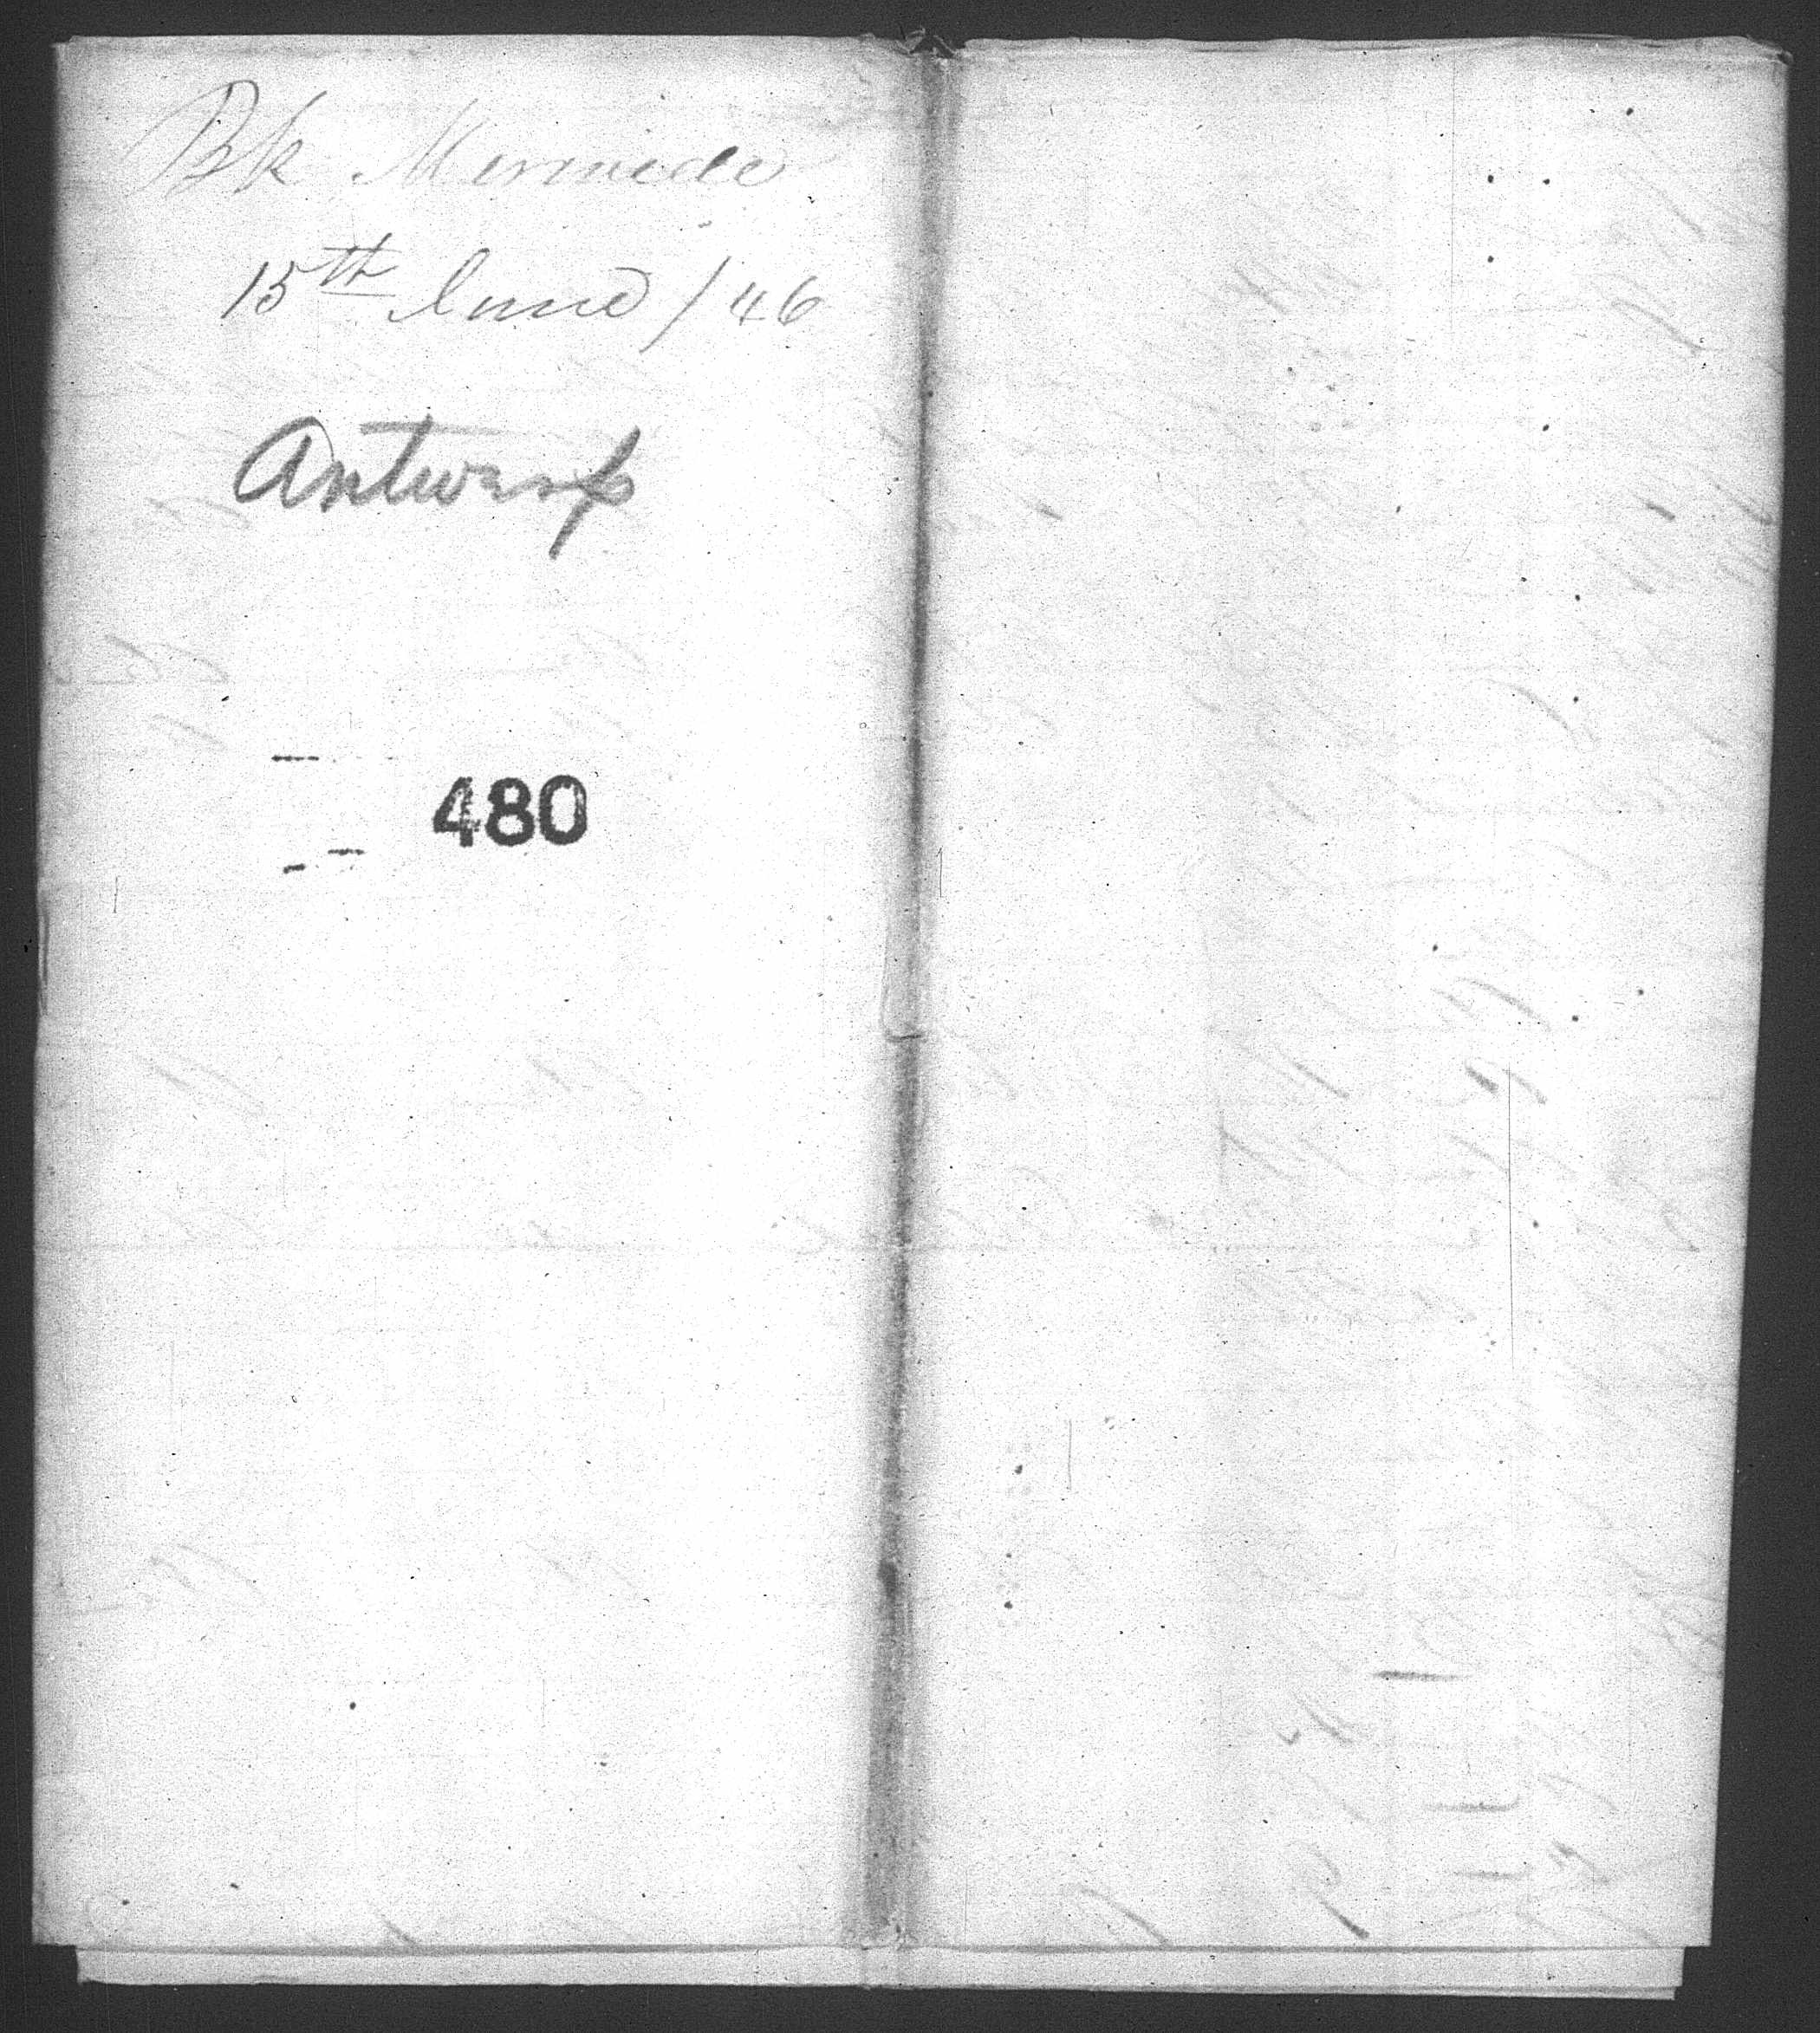 Bk Merwede
15th June / 46
Antwerp
480